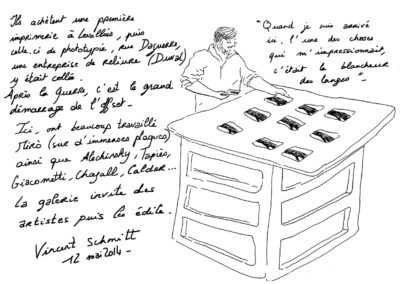 Ils achètent une première
imprimerie à Levallois, puis
celle-ci de phototypie, rue Daguerre,
une entreprise de reliure (Duval)
y était collée.
Après la guerre, c'est le grand
démarrage de l'offset.
Ici, ont beaucoup travaillé
Miró (sur d'immenses plaques)
ainsi que Alechinsky, Tapiès,
Giacometti, Chagall, Calder...
La galerie invite des
artistes puis les édite.
Vincent Schmitt
12 mai 2014 -
"Quand je suis arrivé
ici, l'une des choses
qui m'impressionnait,
c'était la blancheur
des langes" -